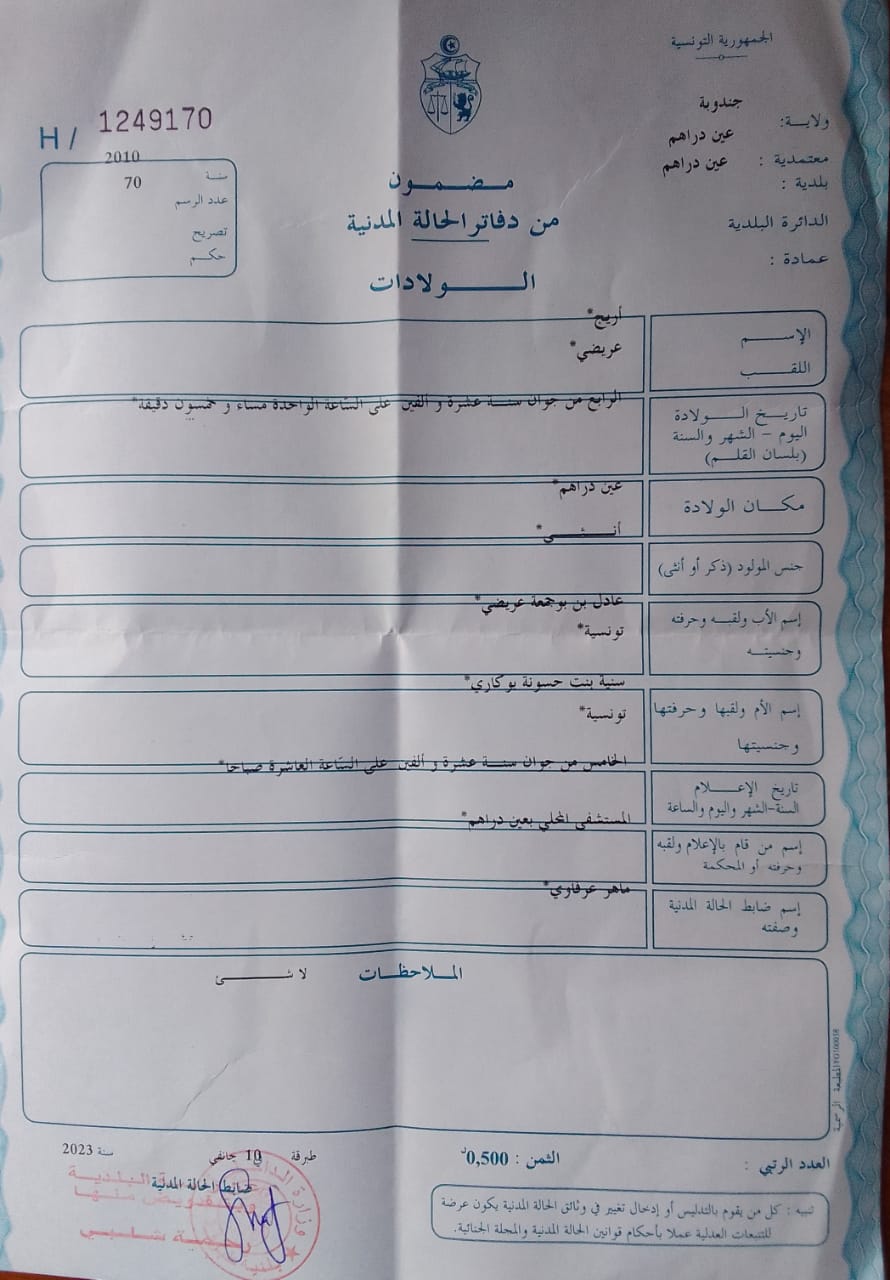 الجمهورية التونسية
H / 1249170
ولاية: جندوبة
معتمدية : عين دراهم
بلدية : عين دراهم
الدائرة البلدية
عمادة :
سنة 2010
عدد الرسم 70
تصريح
حكم
مضمون
من دفاتر الحالة المدنية
الولادات
الإسم أريج*
اللقب عريضي*
تاريخ الولادة
اليوم - الشهر والسنة
(بلسان القلم)
الرابع من جوان سنة عشرة و ألفين على الساعة الواحدة مساء و خمسون دقيقة*
مكان الولادة عين دراهم*
جنس المولود (ذكر أو أنثى) أنثى*
إسم الأب ولقبه وحرفته عادل بن بوجمعة عريضي*
وجنسيته تونسية*
إسم الأم ولقبها وحرفتها سنية بنت حسونة بوكاري*
وجنسيتها تونسية*
تاريخ الإعلام
السنة-الشهر واليوم والساعة
الخامس من جوان سنة عشرة و ألفين على الساعة العاشرة صباحا*
إسم من قام بالإعلام ولقبه
وحرفته أو المحكمة
المستشفى المحلي بعين دراهم*
إسم ضابط الحالة المدنية
وصفته
ماهر عرفاوي*
الملاحظات
لا شئ
المطبعة الرسمية
العدد الرتبي :
الثمن : 0,500د
طبرقة في 10 جانفي سنة 2023
ضابط الحالة المدنية
تنبيه : كل من يقوم بالتدليس أو إدخال تغيير في وثائق الحالة المدنية يكون عرضة
للتتبعات العدلية عملا بأحكام قوانين الحالة المدنية والمجلة الجنائية.